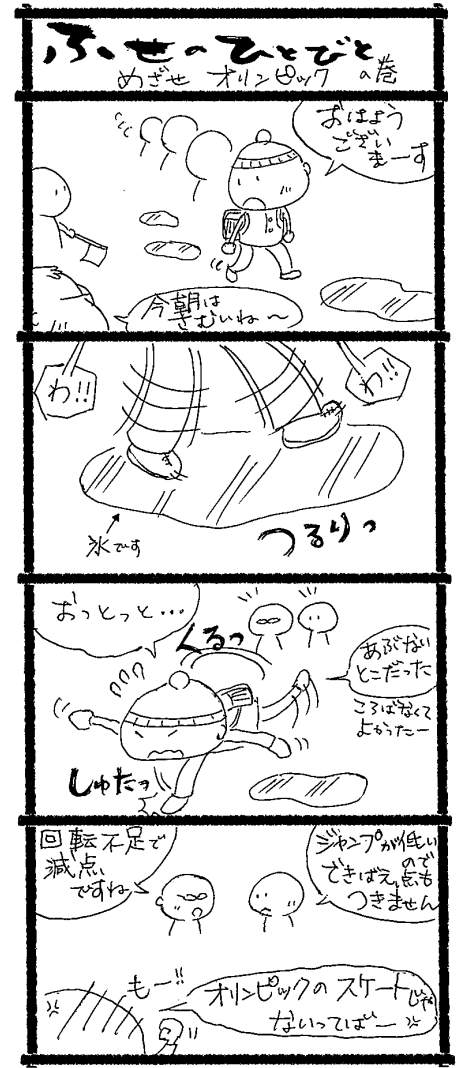 ふせのひとびと
めざせ オリンピック の巻
おはよう
ござい
まーす
今朝は
さむいね〜
わ!!
わ!!
氷です
つるりっ
おっとっと…
くるっ
あぶない
とこだった
ころばなくて
よかったー
しゅたっ
回転不足で
減点
ですね
ジャンプが低い
ので
できばえ点も
つきません
もー!!
オリンピックの スケートじゃ
ないってばー